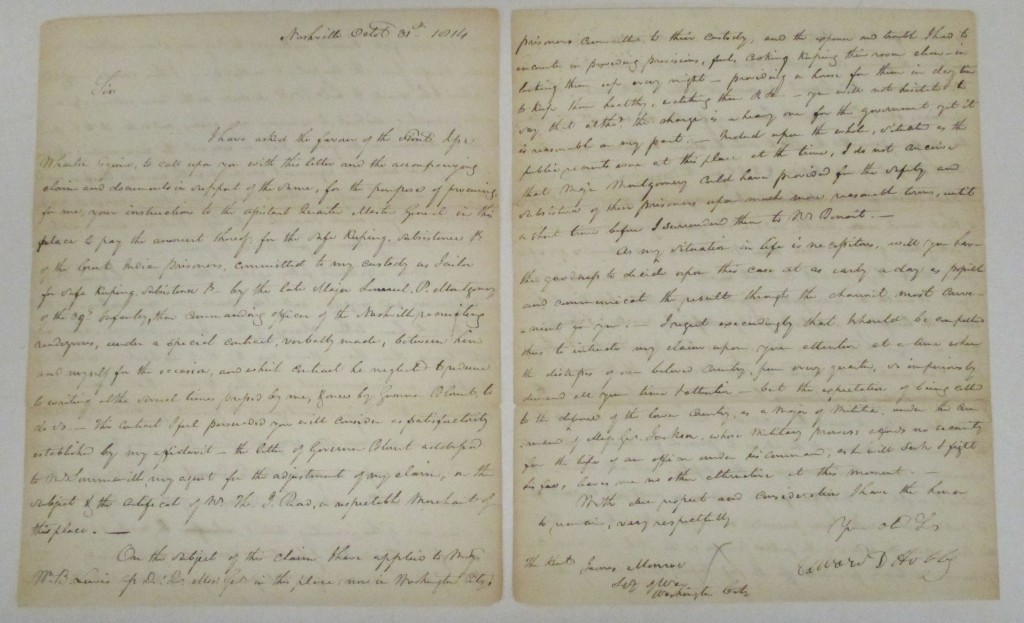 Nashville Octob 31st 1814
Sir
I have asked the favour of the
to call upon you with this letter and the accompanying
claim and documents in support of the same, for the purpose of procuring
for me, your instruction to the assistant Quarter Master General in this
place to pay the amount thereof, for the safe keeping, subsistence &
of the Creek Indian prisoners, committed to my custody as Jailor
for safe keeping subsistence & by the late Major Lemuel P. Montgomery
of the 39th Infantry, then commanding officer of the Nashville recruiting
rendezvous, under a special contract, verbally made, between him
and myself for the occasion, and which contract he neglected to reduce
to writing altho several times pressed by me, & once by Governor Blount, to
do so — This contract I feel persuaded you will consider as satisfactorily
established by my affidavit — the letter of Governor Blount addressed
to my agent for the adjustment of my claim, on the
subject & the certificate of Mr. Tho. J. Read, a respectable Merchant of
this place. —
On the subject of this claim I have applied to Majr
Wm. B. Lewis in this place, now in Washington City,
prisoners committed to their custody, and the expense and trouble I had to
encounter in providing provisions, fuel, cooking keeping their room clean — in
locking them up every night — providing a house for them in day time
to keep them healthy, — you will not hesitate to
say that altho' the charge is a heavy one for the government yet it
is reasonable on my part. — Indeed upon the whole, situated as the
public were at this place at the time, I do not conceive
that Major Montgomery could have provided for the safety and
subsistence of these prisoners upon much more reasonable terms, until
a short time before I surrendered them to
As my situation in life is necessitous, will you have
the goodness to decide upon this case at as early a day as possible
and communicate the result through the channel most conve-
nient to you. — I regret exceedingly that I should be compelled
thus to intrude my claim upon your attention at a time when
the distresses of our beloved Country, from every quarter, so imperiously
demand all your time & attention — but the expectation of being called
to the defence of the lower Country, as a Major of Militia, under the com-
mand of Majr Genl Jackson, whose Military prowess affords no security
for the life of an officer under his command, as he will seek & fight
his foes, leaves me no other alternative at this moment. —
With due respect and consideration I have the honor
to remain, very respectfully
Your ob St
Edward D Hobbs
The Honl. James Monroe
Secy of War
Washington City